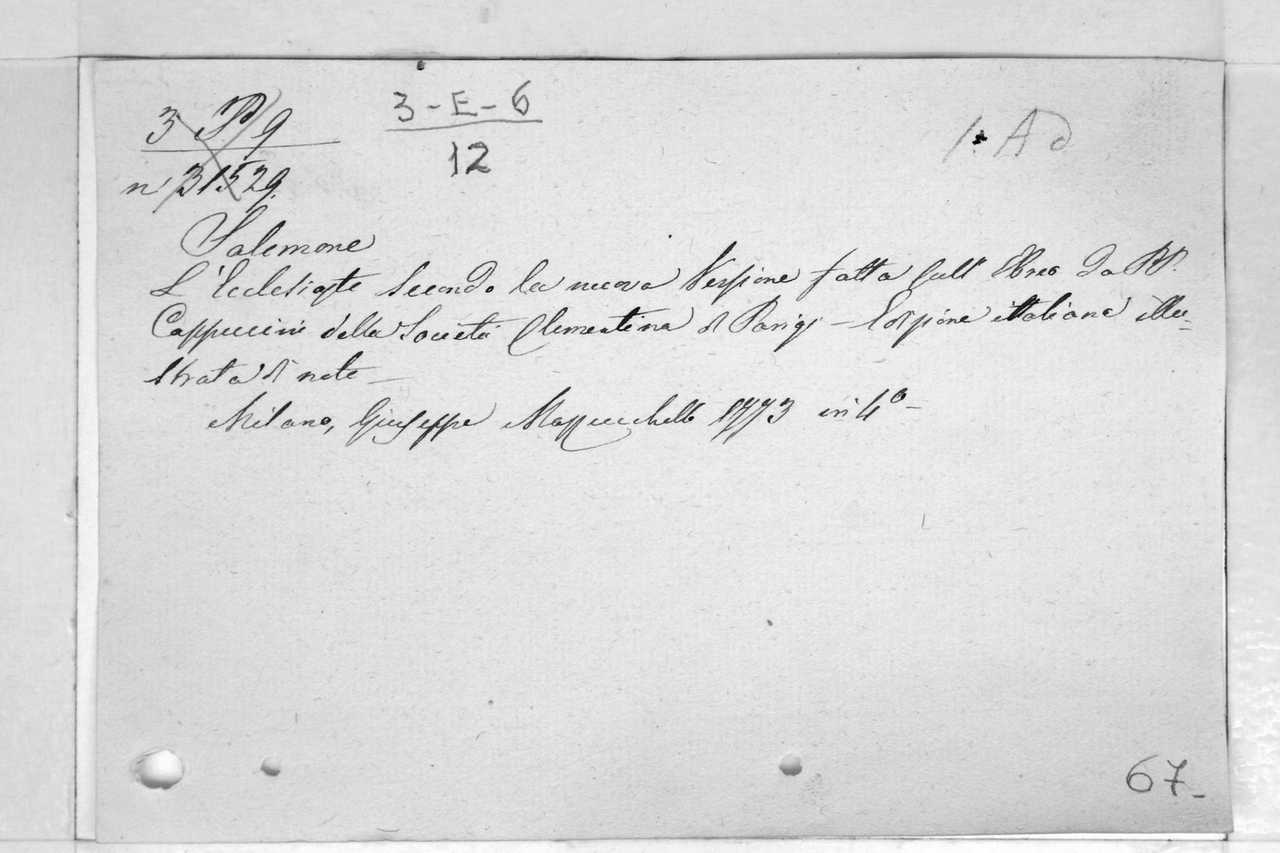 3 P 9
n° 31529.
3-E-6
12
Salomone
L'Ecclesiaste secondo la nuova Versione fatta sull' Ebreo da PP.
Cappuccini della Società Clementina di Parigi – Edizione italiana illu-
strata di note –
Milano, Giuseppe Mazzucchelli 1773 in 4° –
67-